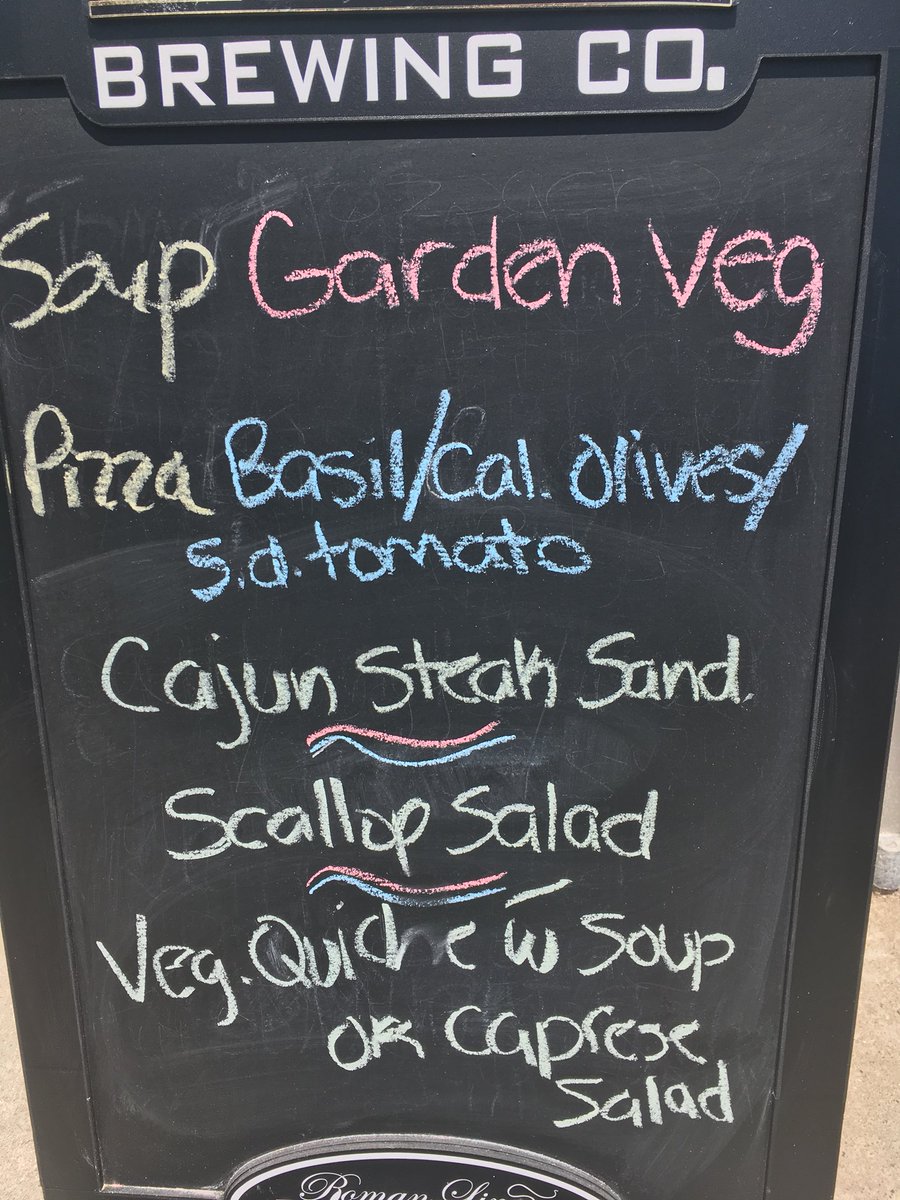 BREWING CO.
Soup Garden Veg
Pizza Basil/Cal. Olives/
s.d. tomato
Cajun Steak Sand.
Scallop Salad
Veg. Quiche w Soup
or Caprese
Salad
Roman